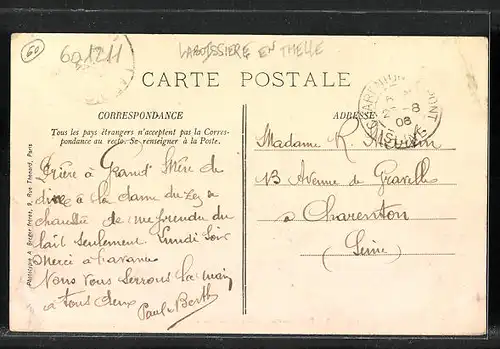 60
601211
LABOISSIERE EN THELLE
CARTE POSTALE
CORRESPONDANCE
Tous les pays étrangers n'acceptent pas la Corres-
pondance au recto. Se renseigner à la Poste.
Phototypie A. Breger frères, 9, Rue Thénard, Paris
Prière à Grand Mère de
dire à la dame du Rez de
chaussée de me prendre du
lait seulement Lundi soir
Merci à l'avance
Nous vous serrons la main
à tous deux
Paul Berth
ADRESSE
Madame R.
13 Avenue de Gravelle
à Charenton
(Seine)
CHARENTON
8
08